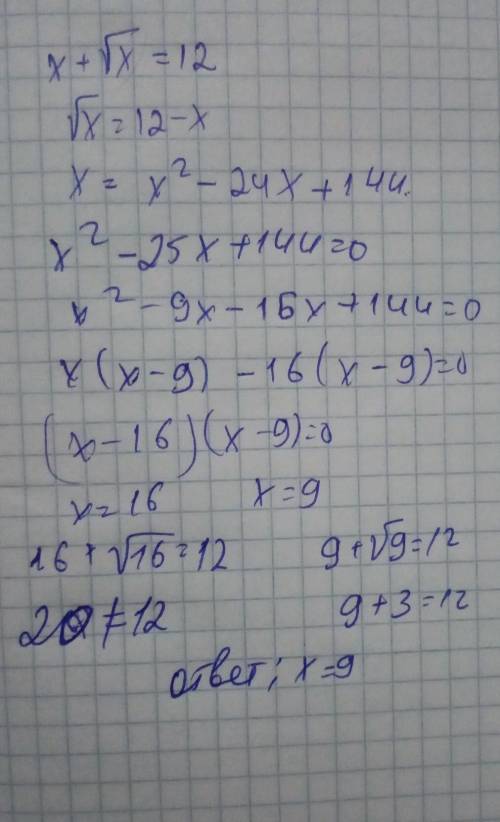 x + √x = 12
√x = 12 - x
x = x² - 24x + 144.
x² - 25x + 144 = 0
x² - 9x - 16x + 144 = 0
x(x - 9) - 16(x - 9) = 0
(x - 16)(x - 9) = 0
x = 16 x = 9
16 + √16 = 12 9 + √9 = 12
20 ≠ 12 9 + 3 = 12
ответ; x = 9